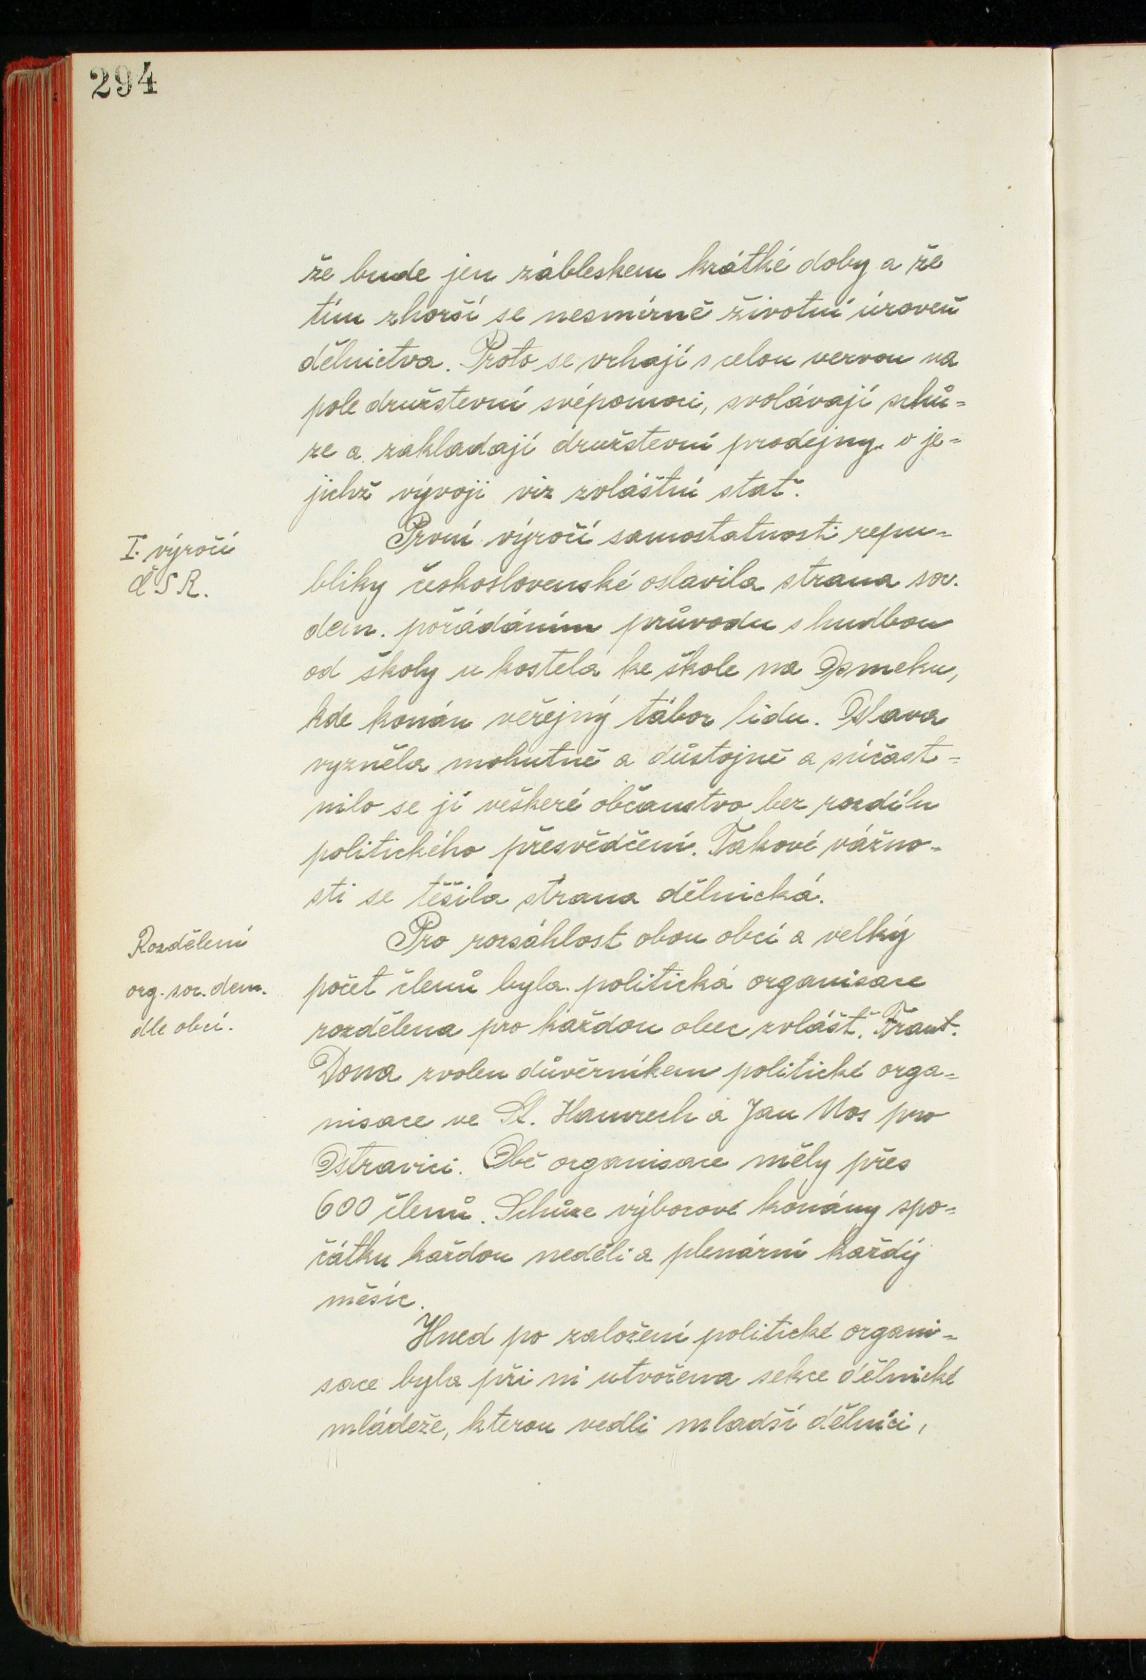 294
že bude jen zábleskem krátké doby a že
tím zhorší se nesmírně životní úroveň
dělnictva. Proto se vrhají s celou vervou na
pole družstevní svépomoci, svolávají schů=
ze a zakladají družstevní prodejny o je=
jichž vývoji viz zvláštní stať.
I. výročí
ČSR.
První výročí samostatnosti repu=
bliky československé oslavila strana soc.
dem. pořádáním průvodu s hudbou
od školy u kostela ke škole na
kde konán veřejný tábor lidu. Oslava
vyzněla mohutně a důstojně a súčast=
nilo se jí veškeré občanstvo bez rozdílu
politického přesvědčení. Takové vážno=
sti se těšila strana dělnická.
Rozdělení
org. soc. dem.
dle obcí.
Pro rozsáhlost obou obcí a velký
počet členů byla politická organisace
rozdělena pro každou obec zvlášť. Frant.
Dona zvolen důvěrníkem politické orga=
nisace ve St. Hamrech a Jan Mos pro
Ostravici. Obě organisace měly přes
600 členů. Schůze výborové konány spo=
čátku každou neděli a plenární každý
měsíc.
Hned po založení politické organi=
sace byla při ní utvořena sekce dělnické
mládeže, kterou vedli mladší dělníci,